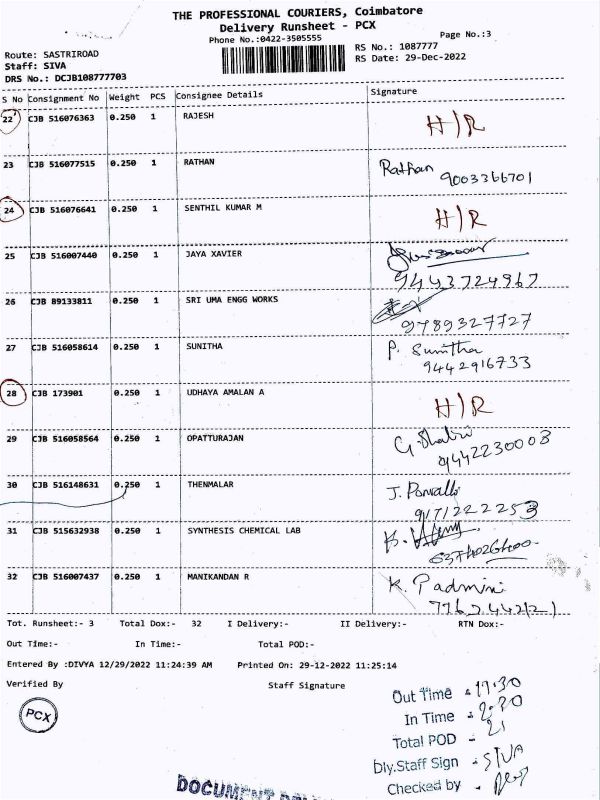 THE PROFESSIONAL COURIERS, Coimbatore
Delivery Runsheet - PCX
Phone No.:0422-3505555
Page No.:3
Route: SASTRIROAD
RS No.: 1087777
Staff: SIVA
RS Date: 29-Dec-2022
DRS No.: DCJB108777703
S No Consignment No Weight PCS Consignee Details Signature
22 CJB 516076363 0.250 1 RAJESH H/R
23 CJB 516077515 0.250 1 RATHAN Rathan
9003366701
24 CJB 516076641 0.250 1 SENTHIL KUMAR M H/R
25 CJB 516007440 0.250 1 JAYA XAVIER
9443724967
26 CJB 89133811 0.250 1 SRI UMA ENGG WORKS
9789327727
27 CJB 516058614 0.250 1 SUNITHA P. Sunitha
9442916733
28 CJB 173901 0.250 1 UDHAYA AMALAN A H/R
29 CJB 516058564 0.250 1 OPATTURAJAN
9442230003
30 CJB 516148631 0.250 1 THENMALAR
9171222253
31 CJB 515632938 0.250 1 SYNTHESIS CHEMICAL LAB
32 CJB 516007437 0.250 1 MANIKANDAN R K. Padmini
Tot. Runsheet:- 3 Total Dox:- 32 I Delivery:- II Delivery:- RTN Dox:-
Out Time:- In Time:- Total POD:-
Entered By :DIVYA 12/29/2022 11:24:39 AM Printed On: 29-12-2022 11:25:14
Verified By Staff Signature
PCX
Out Time
In Time
Total POD - 21
Dly.Staff Sign - SIVA
Checked by -
DOCUMENT